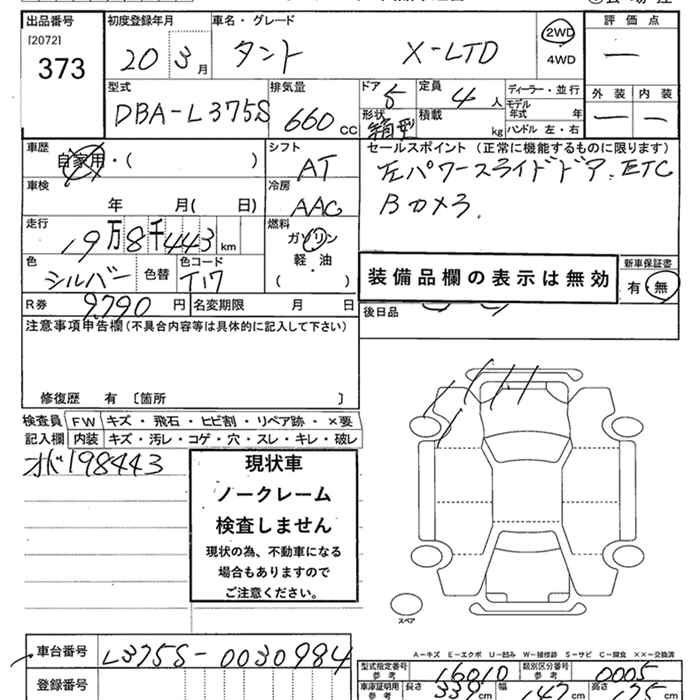 出品番号 初度登録年月 車名・グレード 評価点
[2072] 373 20 3月 タント X-LTD 2WD 4WD ー
型式 排気量 ドア 定員 ディーラー・並行 外装 内装
DBA-L375S 660 CC 5 4人 モデル年式 年 ー ー
形状 箱型 積載 kg ハンドル 左・右
車歴 自家用・( ) シフト AT セールスポイント(正常に機能するものに限ります)
車検 年 月( 日) 冷房 AAC 左パワースライドドア. ETC
Bカメラ.
走行 19万8千443km 燃料 ガソリン 軽油 ・ ( )
色 シルバー 色替 色コード T17 装備品欄の表示は無効 新車保証書 有・無
R券 9,790円 名変期限 月 日 後日品
注意事項申告欄(不具合内容等は具体的に記入して下さい)
修復歴 有 〔箇所 〕
検査員 FW キズ・飛石・ヒビ割・リペア跡・×要
記入欄 内装 キズ・汚レ・コゲ・穴・スレ・キレ・破レ
198443
現状車
ノークレーム
検査しません
現状の為、不動車になる
場合もありますので
ご注意ください。
スペア
A－キズ E－エクボ U－凹み W－補修跡 S－サビ C－腐食 ××－交換済
車台番号 L375S-0030984
型式指定番号 参考 16010 類別区分番号 参考 0005
登録番号
車庫証明用 参考 長さ 339cm 幅 147cm 高さ 175cm